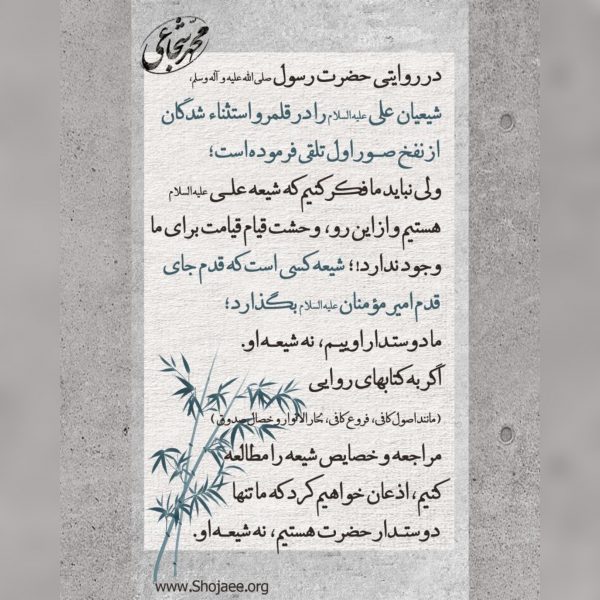 محمد شجاعی
در روایتی حضرت رسول صلی الله علیه و آله وسلم،
شیعیان علی علیه السلام را در قلمرو استثناء شدگان
از نفخ صور اول تلقی فرموده است؛
ولی نباید ما فکر کنیم که شیعه علی علیه السلام
هستیم و از این رو، وحشت قیام قیامت برای ما
وجود ندارد!؛ شیعه کسی است که قدم جای
قدم امیر مؤمنان علیه السلام بگذارد؛
ما دوستدار اوییم، نه شیعه او.
اگر به کتابهای روایی
(مانند اصول کافی، فروع کافی، بحارالانوار و خصال صدوق)
مراجعه و خصایص شیعه را مطالعه
کنیم، اذعان خواهیم کرد که ما تنها
دوستدار حضرت هستیم، نه شیعه او.
www.Shojaee.org